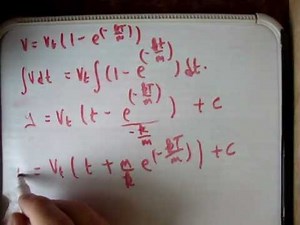 V = V_t (1 - e^(-kT/m))
∫V dt = V_t ∫(1 - e^(-kt/m)) dt.
y = V_t (t - e^(-kT/m) / -k/m) + c
= V_t (t + m/k e^(-kT/m)) + c